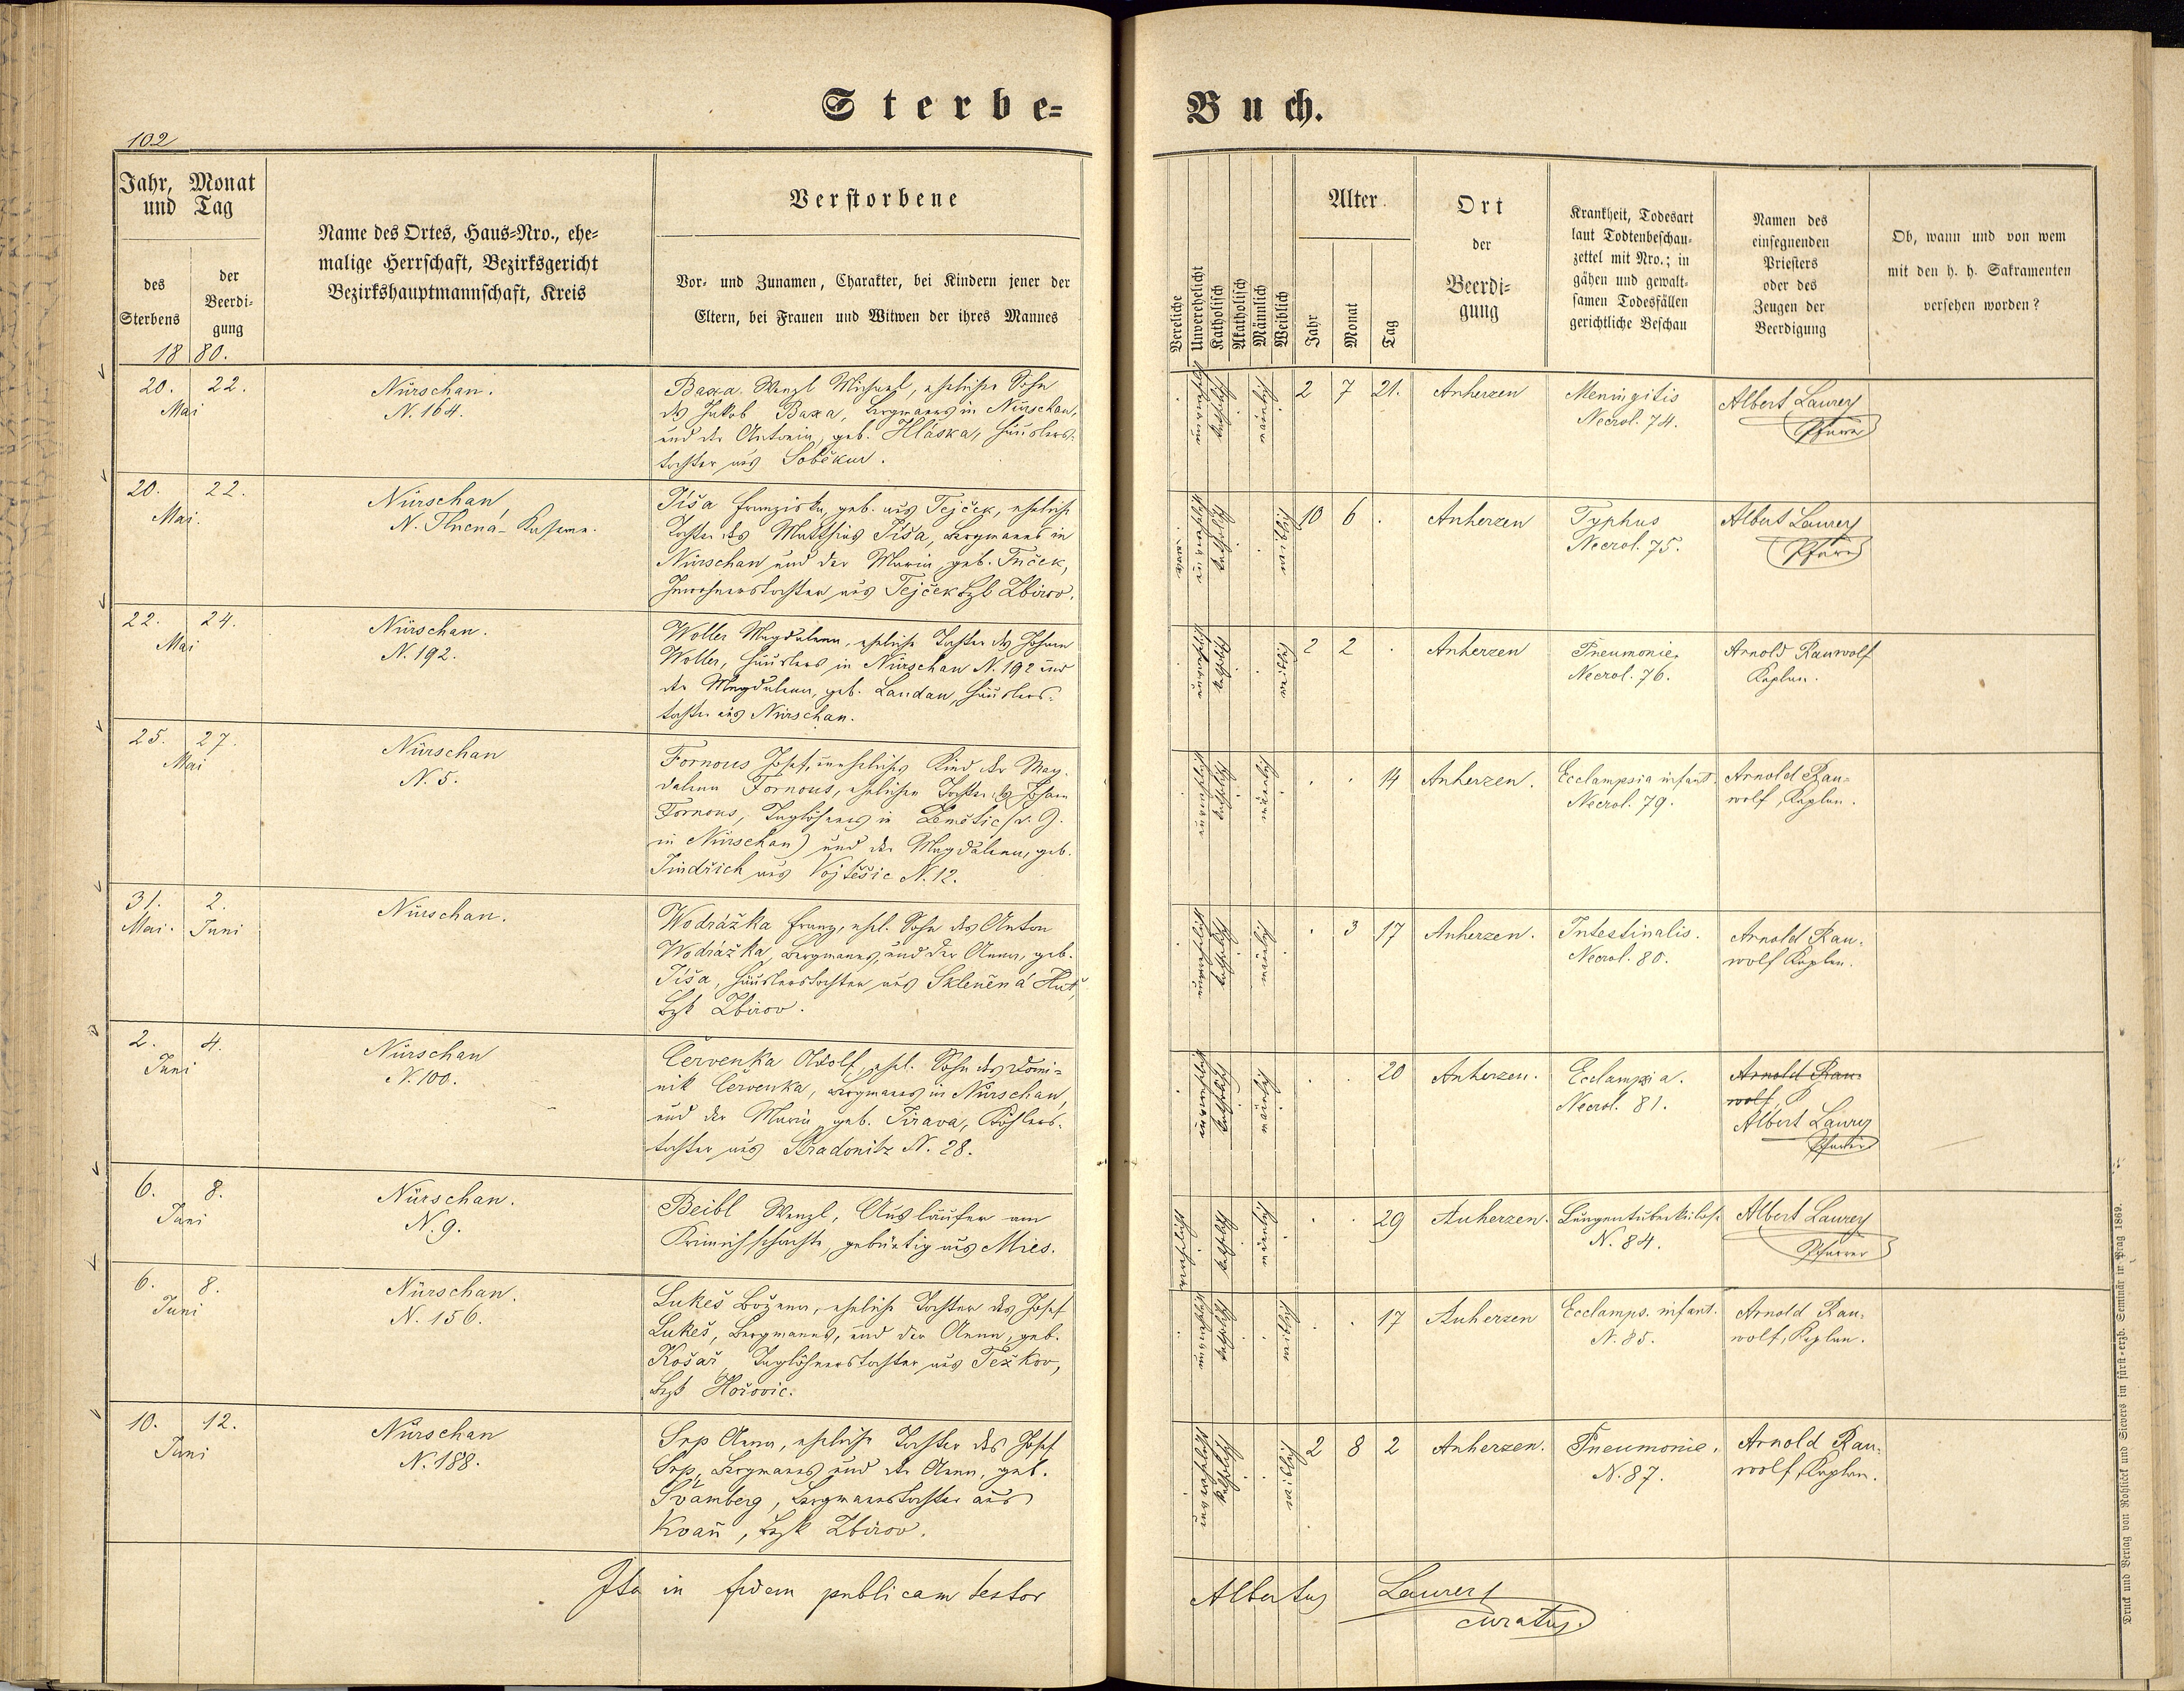 Sterbe=
Buch.
102
Jahr, Monat
und Tag
des
Sterbens
der
Beerdi-
gung
1880.
Name des Ortes, Haus=Nro., ehe=
malige Herrschaft, Bezirksgericht
Bezirkshauptmannschaft, Kreis
Verstorbene
Vor- und Zunamen, Charakter, bei Kindern jener der
Eltern, bei Frauen und Witwen der ihres Mannes
Vereliche
Unverehelicht
Katholisch
Akatholisch
Männlich
Weiblich
Alter.
Jahr
Monat
Tag
Ort
der
Beerdi=
gung
Krankheit, Todesart
laut Todtenbeschau-
zettel mit Nro.; in
gähen und gewalt-
samen Todesfällen
gerichtliche Beschau
Namen des
einsegnenden
Priesters
oder des
Zeugen der
Beerdigung
Ob, wann und von wem
mit den h. h. Sakramenten
versehen worden?
20. 22.
Mai
Nürschan.
N. 164.
Baxa Wenzl Michael, ehelicher Sohn
des Jakob Baxa, Bergmanns in Nürschan,
und der Antonia, geb. Hláska, Häuslers-
tochter aus Soběkur.
unverehelicht katholisch männlich
2 7 21.
Anherzen
Meningitis
Necrol. 74.
Albert Laurer
Pfarrer
20. 22.
Mai.
Nürschan,
N. Kaserne.
Píša Franziska, geb. aus Tejček, eheliche
Tochter des Matthias Píša, Bergmanns in
Nürschan und der Maria, geb.
Inwohnerstochter aus Tejček Bzk Zbirov.
katholisch weiblich
10 6 .
Anherzen
Typhus
Necrol. 75.
Albert Laurer
Pfarrer
22. 24.
Mai
Nürschan.
N. 192.
Woller Magdalena, eheliche Tochter des Johann
Woller, Häuslers in Nürschan N. 192 und
der Magdalena, geb. Landau, Häuslers-
tochter aus Nürschan.
unverehelicht katholisch weiblich
2 2 .
Anherzen
Pneumonie.
Necrol. 76.
Arnold Rauwolf
Kaplan.
25. 27.
Mai
Nürschan
N. 5.
Fornous Josef, uneheliches Kind der Mag-
dalena Fornous, ehelichen Tochter des Johann
Fornous, Taglöhners in Zemětic (d. Z.
in Nürschan) und der Magdalena, geb.
Jindřich aus Vojtěšic N. 12.
unverehelicht katholisch männlich
. . 14
Anherzen.
Ecclampsia infant.
Necrol. 79.
Arnold Rau-
wolf, Kaplan.
31. 2.
Mai. Juni
Nürschan.
Wodrážka Franz, ehel. Sohn des Anton
Wodrážka, Bergmanns, und der Anna, geb.
Píša, Häuslerstochter aus Sklenená Huť,
Bzk Zbirov.
unverehelicht katholisch männlich
. 3 17
Anherzen.
Intestinalis.
Necrol. 80.
Arnold Rau-
wolf Kaplan.
2. 4.
Juni
Nürschan
N. 100.
Červenka Adolf, ehel. Sohn des Domi-
nik Červenka, Bergmanns in Nürschan,
und der Maria, geb. Jirava, Köhlers-
tochter aus Stradonitz N. 28.
unverehelicht katholisch männlich
. . 20
Anherzen.
Ecclampsia.
Necrol. 81.
Arnold Rau-
wolf,
Albert Laurer
Pfarrer
6. 8.
Juni
Nürschan.
N. 9.
Beibl Wenzl, Ausläufer am
Krimichschachte, gebürtig aus Mies.
verehelicht katholisch männlich
. . 29
Anherzen.
Lungentuberkulos.
N. 84.
Albert Laurer
Pfarrer
6. 8.
Juni
Nürschan.
N. 156.
Lukeš Božena, eheliche Tochter des Josef
Lukeš, Bergmanns, und der Anna, geb.
Košař, Taglöhnerstochter aus Težkov,
Bzk Hořovic.
unverehelicht katholisch weiblich
. . 17
Anherzen
Ecclamps. infant.
N. 85.
Arnold Rau-
wolf, Kaplan.
10. 12.
Juni
Nürschan
N. 188.
Srp Anna, eheliche Tochter des Josef
Srp, Bergmanns und der Anna, geb.
Švamberg, Bergmannstochter aus
Kvaň, Bzk Zbirov.
unverehelicht katholisch weiblich
2 8 2
Anherzen.
Pneumonie.
N. 87.
Arnold Rau-
wolf, Kaplan.
Ita in fidem publicam testor
Albertus Laurer
curatus.
Druck und Verlag von Rohliček und Sievers im fürst-erzb. Seminär in Prag 1869.